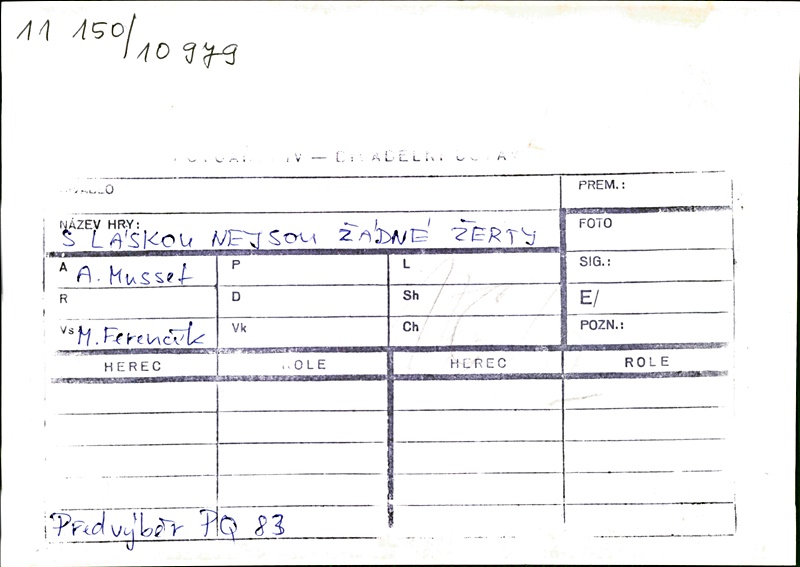 11 150/10 979
PREM.:
NÁZEV HRY:
S LÁSKOU NEJSOU ŽÁDNÉ ŽERTY
FOTO
A A. Musset P L SIG.:
R D Sh E/
Vs M. Ferenčík Vk Ch POZN.:
HEREC HEREC ROLE
Předvýběr PQ 83